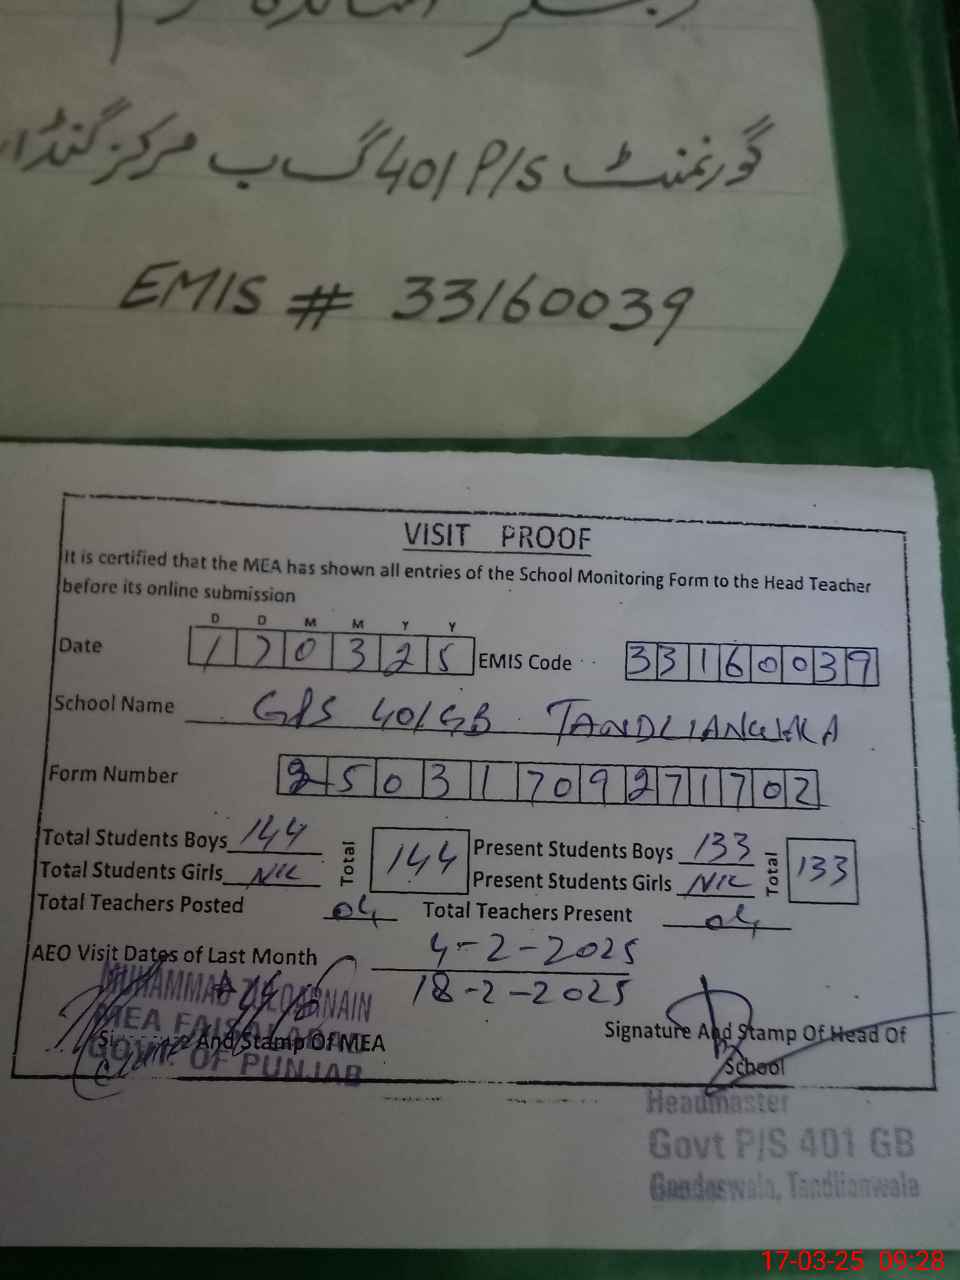 گورنمنٹ P/S 401 گ ب مرکز گنڈا
EMIS # 33160039
VISIT PROOF
It is certified that the MEA has shown all entries of the School Monitoring Form to the Head Teacher
before its online submission
D D M M Y Y
Date 170325 EMIS Code 33160039
School Name GPS 401GB TANDLIANWALA
Form Number 2503170927 1702
Total Students Boys 144 Total 144 Present Students Boys 133 Total 133
Total Students Girls NIL Present Students Girls NIL
Total Teachers Posted 04 Total Teachers Present 04
AEO Visit Dates of Last Month 4-2-2025
18-2-2025
MUHAMMAD ZULQARNAIN
MEA FAISALABAD
GOVT OF PUNJAB
Signature And Stamp Of MEA
Signature And Stamp Of Head Of
School
Headmaster
Govt P/S 401 GB
Gandaswala, Tandlianwala
17-03-25 09:28